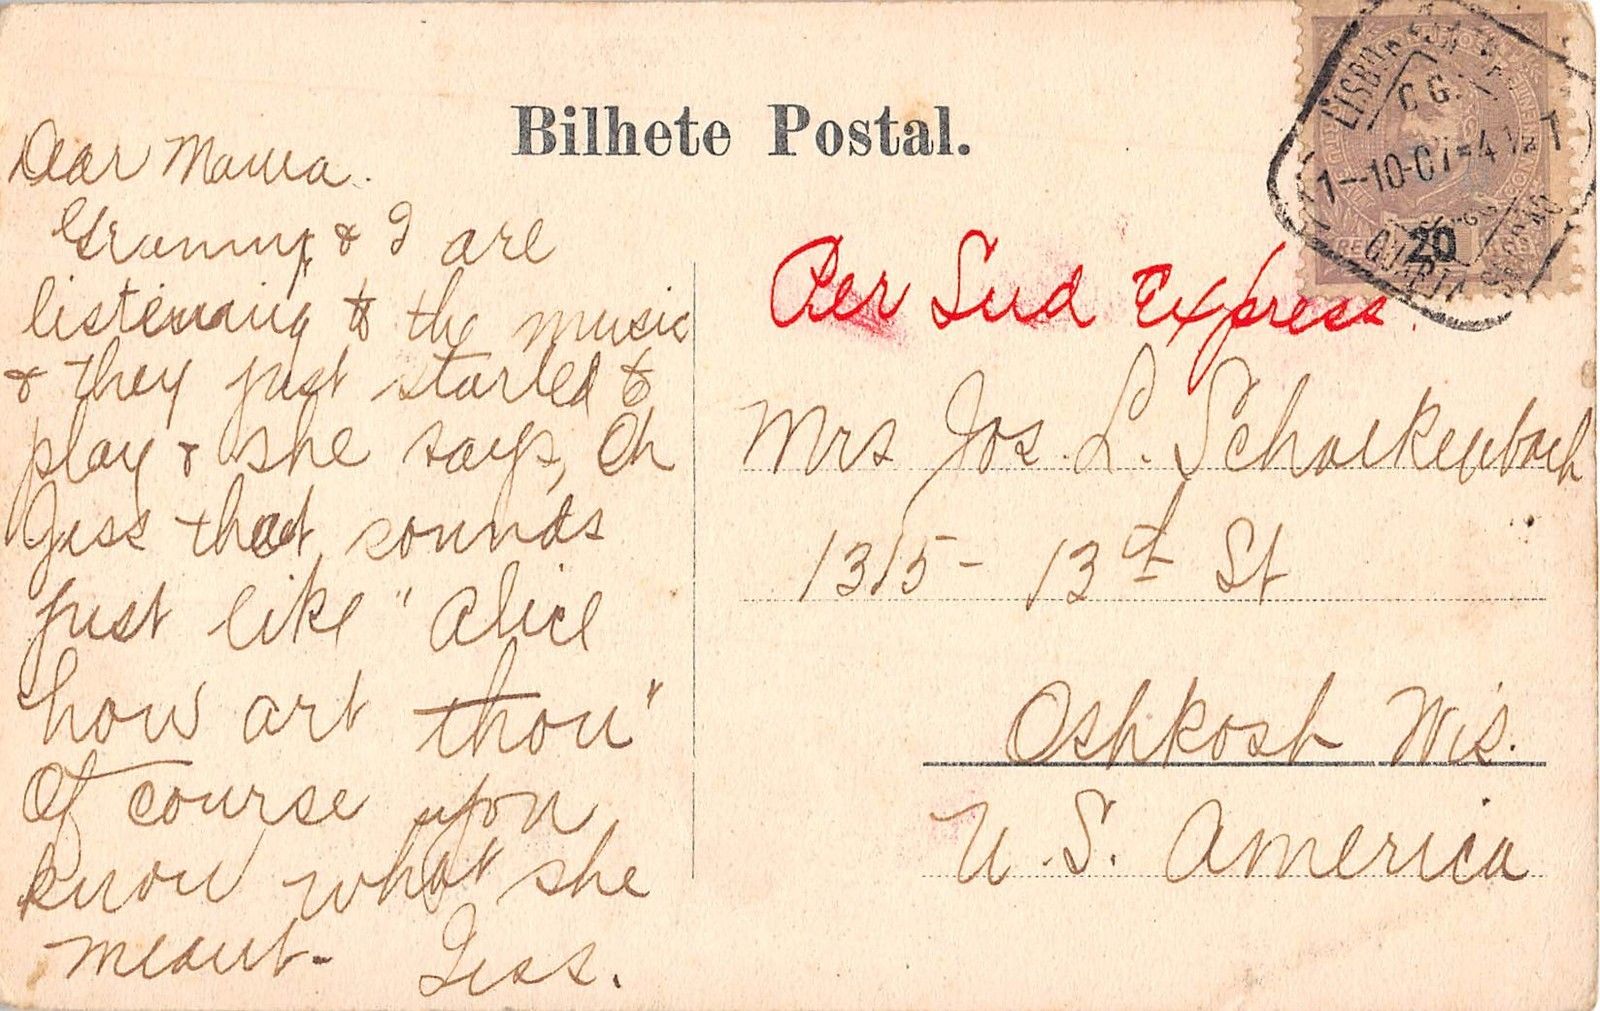 Bilhete Postal.
Dear Mama.
Granny & I are
listening to the music
& they just started to
play & she says, Oh
Jess that sounds
just like "Alice
how art thou"
Of course you
know what she
meant- Jess.
Per Sud Express.
Mrs Jos. L. Schalkenbach
1315- 13th St
Oshkosh Wis.
U.S. America
LISBOA
C.G.
1-10-07=4
20
QUARTA